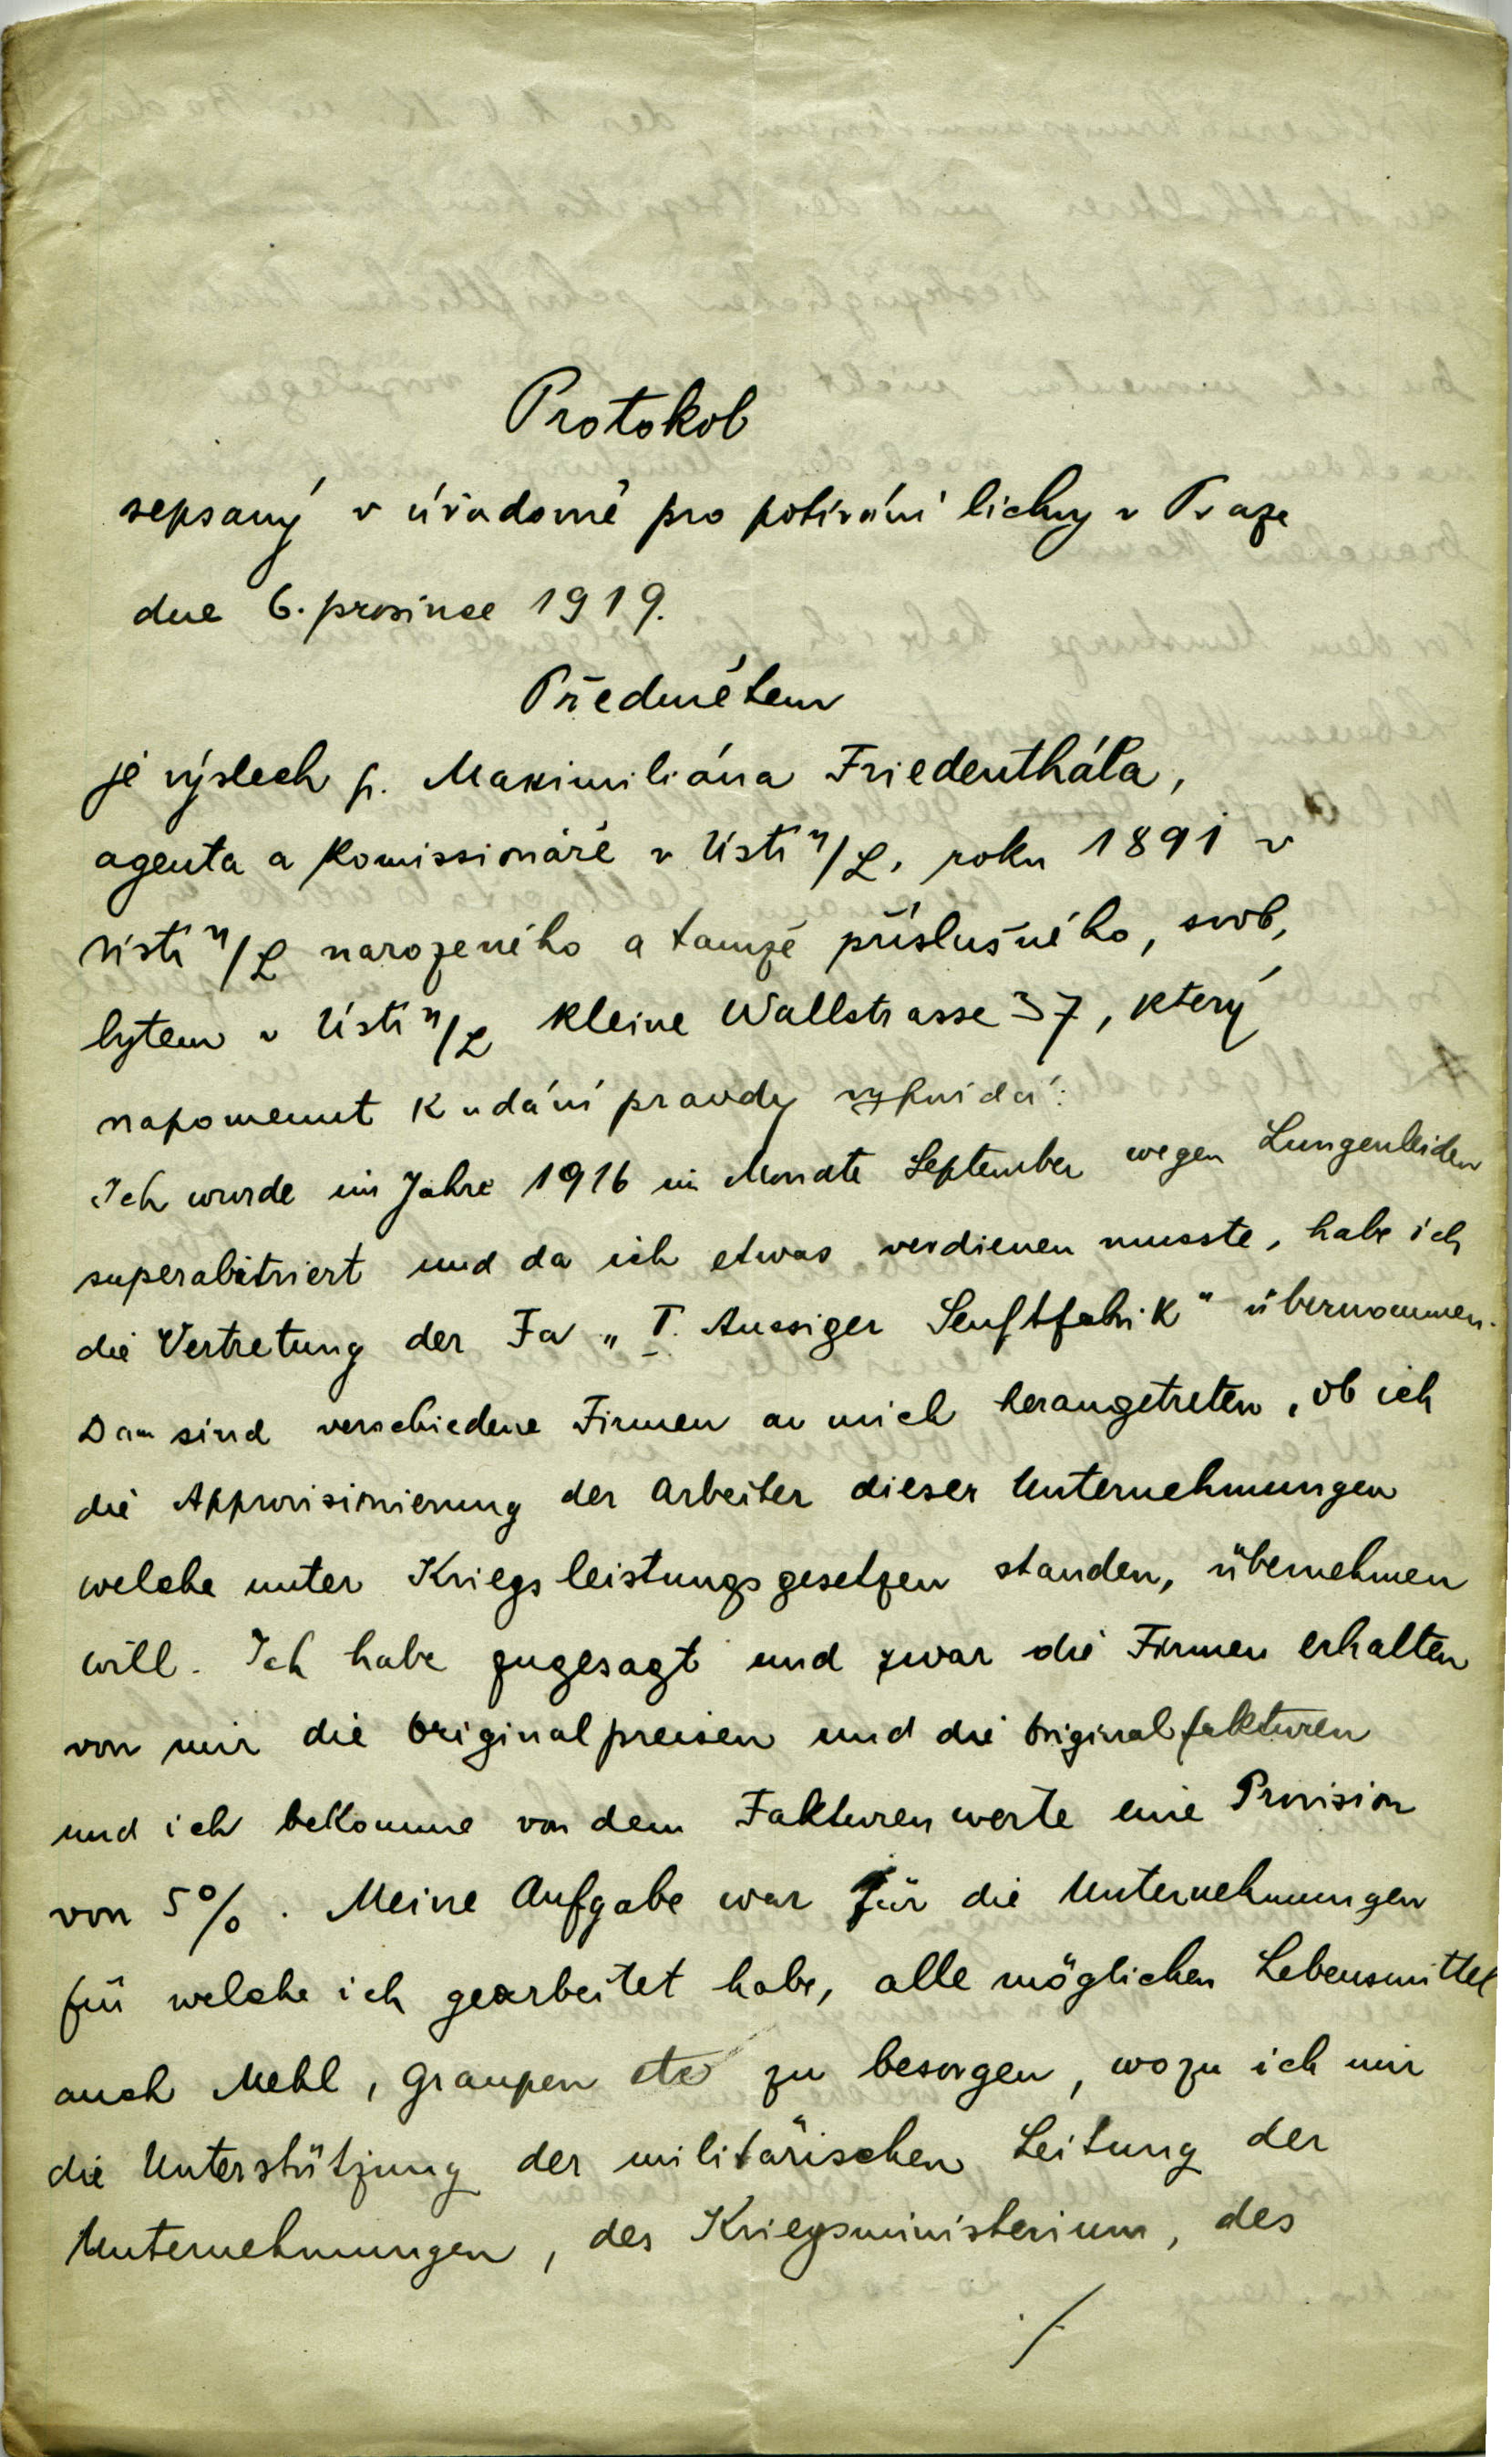 Protokol
sepsaný v úřadovně pro potírání lichvy v Praze
dne 6. prosince 1919.
Předmětem
je výslech p. Maximiliána Friedenthála,
agenta a komissionáře v Ústí n/L, roku 1891 v
Ústí n/L narozeného a tamže příslušného, svob,
bytem v Ústí n/L kleine Wallstrasse 37, který
napomenut k udání pravdy vypovídá:
Ich wurde im Jahre 1916 im Monate September wegen Lungenleiden
superabitriert und da ich etwas verdienen musste, habe ich
die Vertretung der Fa „I. Aussiger Senftfabrik" übernommen.
Dan sind verschiedene Firmen an mich herangetreten, ob ich
die Approvisionierung der Arbeiter dieser Unternehmungen
welche unter Kriegsleistungsgesetzen standen, übernehmen
will. Ich habe zugesagt und zwar die Firmen erhalten
von mir die Originalpreisen und die Originalfakturen
und ich bekomme von dem Fakturenwerte eine Provision
von 5%. Meine Aufgabe war für die Unternehmungen
für welche ich gearbeitet habe, alle möglichen Lebensmittel
auch Mehl, Graupen etc zu besorgen, wozu ich mir
die Unterstützung der militärischen Leitung der
Unternehmungen, des Kriegsministerium, des
./.